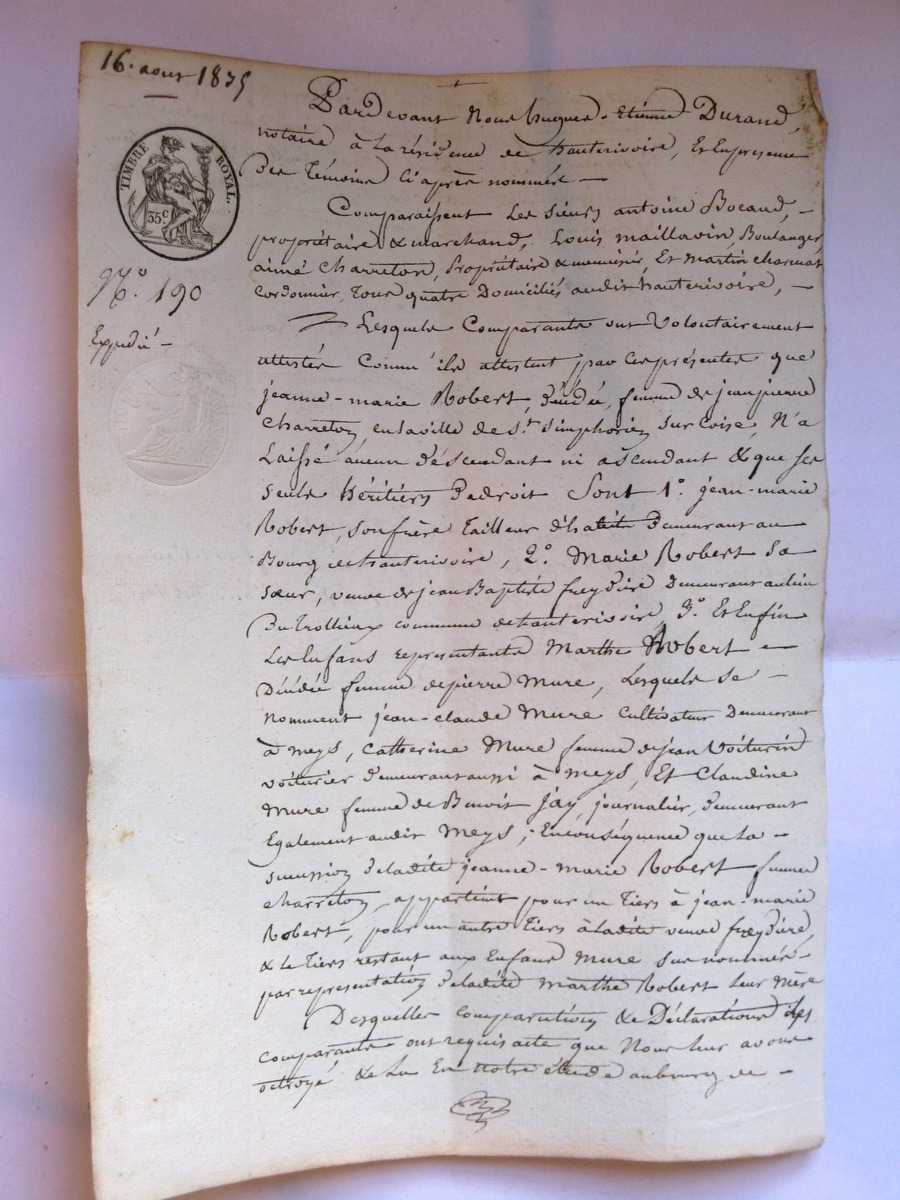 16. aout 1835
Pardevant Nous hugues-Etienne Durand,
notaire à la résidence de hauterivoire, Et En presence
Des Témoins ci après nommés —
TIMBRE ROYAL.
35 c
Comparaissent Les sieurs antoine Bocand, —
propriétaire & marchand, Louis maillavin, Boulanger,
aimé Charreton, propriétaire & menuisier, Et martin charmat
cordonnier, Tous quatre Domiciliés audit hauterivoire, —
N.o 190
Expédié —
Lesquels Comparants ont Volontairement
attestés Comm'ils attestent par Ces présentes que
jeanne-marie Robert, décédée, femme de jean pierre
Charreton, en la ville de S.t Simphorien sur Coise, N'a
Laissé aucun descendant ni ascendant & que ses
seuls héritiers De droit Sont 1.o jean-marie
Robert, son frère Tailleur d'habits Demeurant au
Bourg de hauterivoire, 2.o Marie Robert sa
sœur, veuve de jean Baptiste freydière Demeurant au lieu
Du Trollieux commune de hauterivoire, 3.o Et Enfin
Les Enfans représentants Marthe Robert —
Décédée femme de pierre Mure, Lesquels se —
nomment jean-claude Mure Cultivateur Demeurant
à meys, Catherine Mure femme de jean Voiturin
voiturier demeurant aussi à Meys, Et Claudine
Mure femme de Benoit Jay, journalier, demeurant
Egalement audit Meys; En conséquence que La —
succession de ladite jeanne-marie Robert femme
charreton, appartient pour un Tiers à jean-marie
Robert, pour un autre Tiers à ladite veuve freydière,
& le Tiers restant aux Enfans Mure sus nommés —
par représentation de ladite Marthe Robert Leur Mère
Desquelles comparutions & Déclarations les
comparants ont requis acte que Nous leur avons
octroyé & Lu En Notre étude au bourg de —